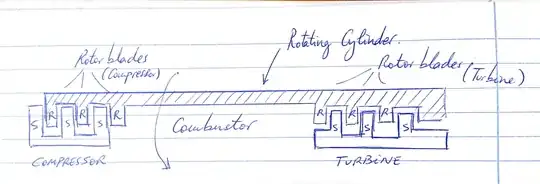 Rotating Cylinder.
Rotor blades
(Compressor)
Rotor blades (Turbine)
R R R R R R
S S S S S S
Combustor
COMPRESSOR
TURBINE